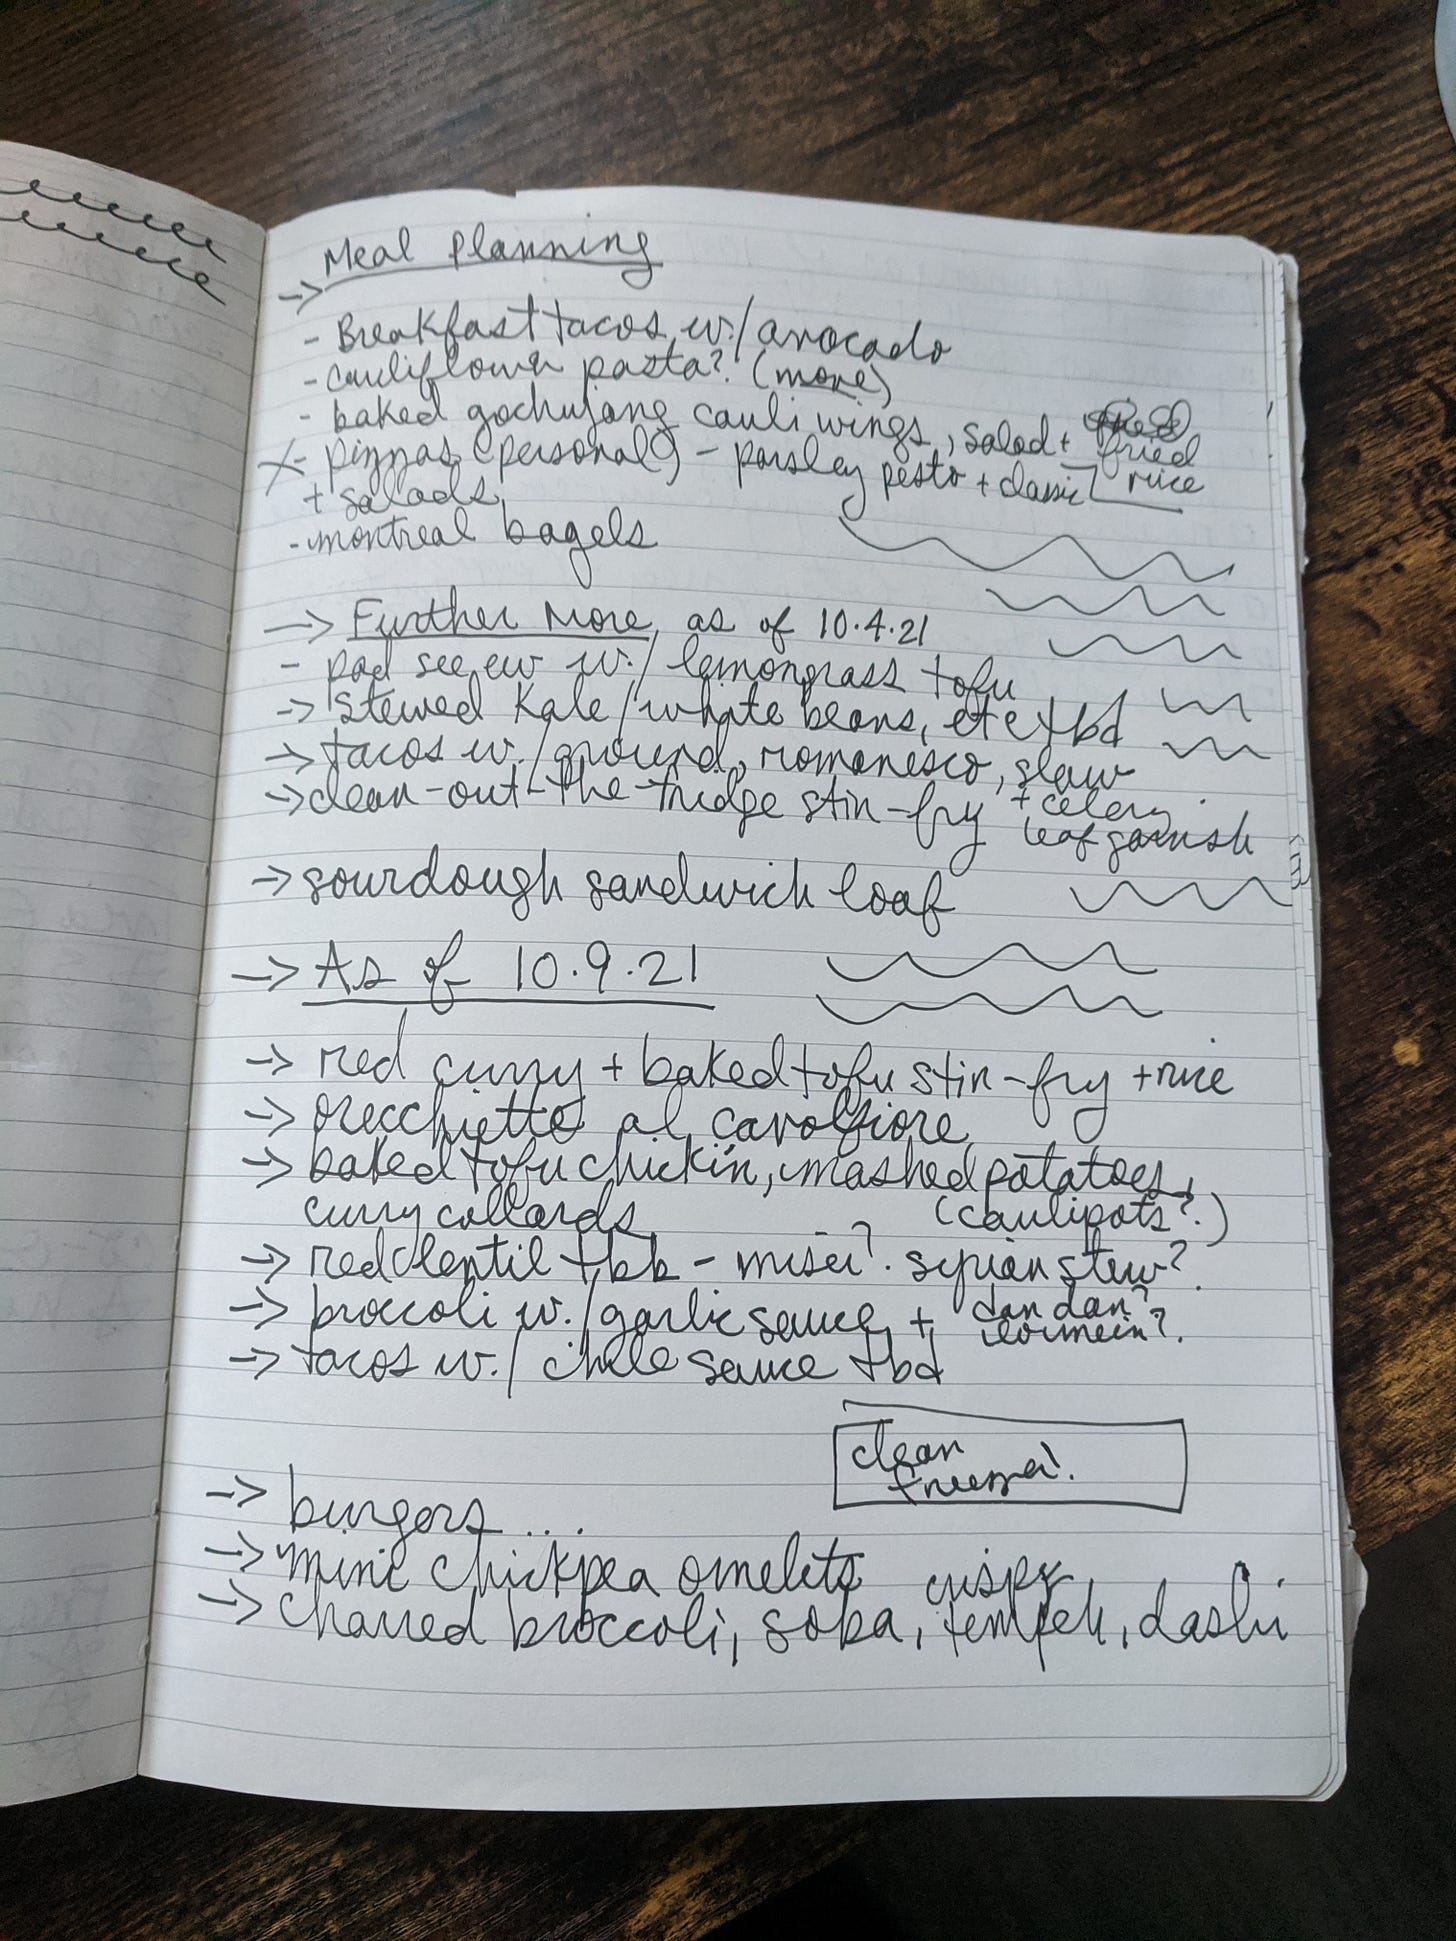 Meal Planning
→
- Breakfast tacos w./ avocado
- cauliflower pasta? (more)
- baked gochujang cauli wings, salad + fried rice
X - pizzas (personal) - parsley pesto + classic
+ salads
- montreal bagels
→ Further More as of 10.4.21
- pad see ew w./ lemongrass tofu
→ stewed kale/white beans, etc tbd
→ tacos w./ ground, romanesco, slaw
→ clean-out-the-fridge stir-fry + celery
leaf garnish
→ sourdough sandwich loaf
→ As of 10.9.21
→ red curry + baked tofu stir-fry + rice
→ orecchiette al cavolfiore
→ baked tofu chickin, mashed potatoes,
curry collards (caulipots?)
→ red lentil tbh - misir? syrian stew?
→ broccoli w./ garlic sauce + dan dan?
lo mein?
→ tacos w./ chile sauce tbd
clean
freezer!
→ burgers ...
→ mini chickpea omelets
→ charred broccoli, soba, crispy tempeh, dashi